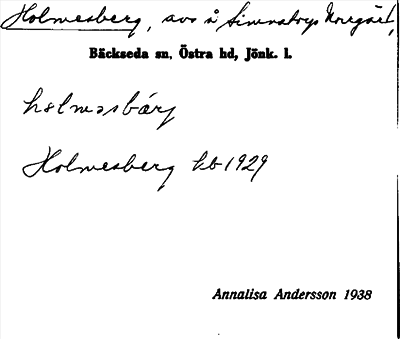 Holmesberg, avs å Simnatorps Norrgård,
Bäckseda sn, Östra hd, Jönk. l.
holmesbärj
Holmesberg kb 1929
Annalisa Andersson 1938